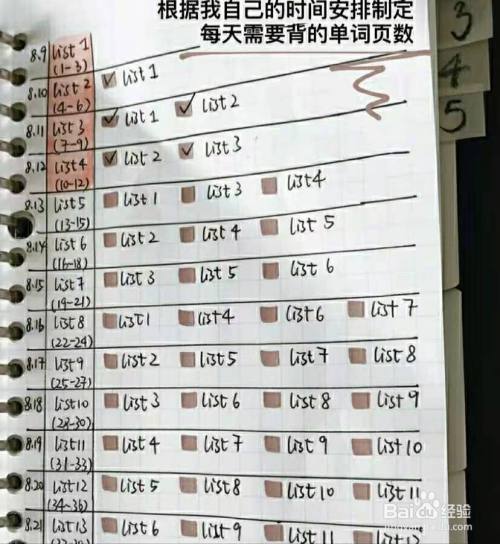 根据我自己的时间安排制定
每天需要背的单词页数
3
4
5
8.9 list 1 list 1
(1-3)
8.10 list 2 list 1 list 2
(4-6)
8.11 list 3 list 2 list 3
(7-9)
8.12 list4 list 1 list 3 list4
(10-12)
8.13 list 5 list 2 list 4 list 5
(13-15)
8.14 list 6 list 3 list 5 list 6
(16-18)
8.15 list 7
(19-21)
8.16 list 8 list1 list4 list 6 list 7
(22-24)
8.17 list 9 list 2 list 5 list 7 list 8
(25-27)
8.18 list10 list 3 list 6 list 8 list 9
(28-30)
8.19 list 11 list 4 list 7 list 9 list 10
(31-33)
8.20 list 12 list 5 list 8 list 10 list 11
(34-36)
8.21 list 13 list 6 list 9 list 11
Baidu经验
jingyan.baidu.com